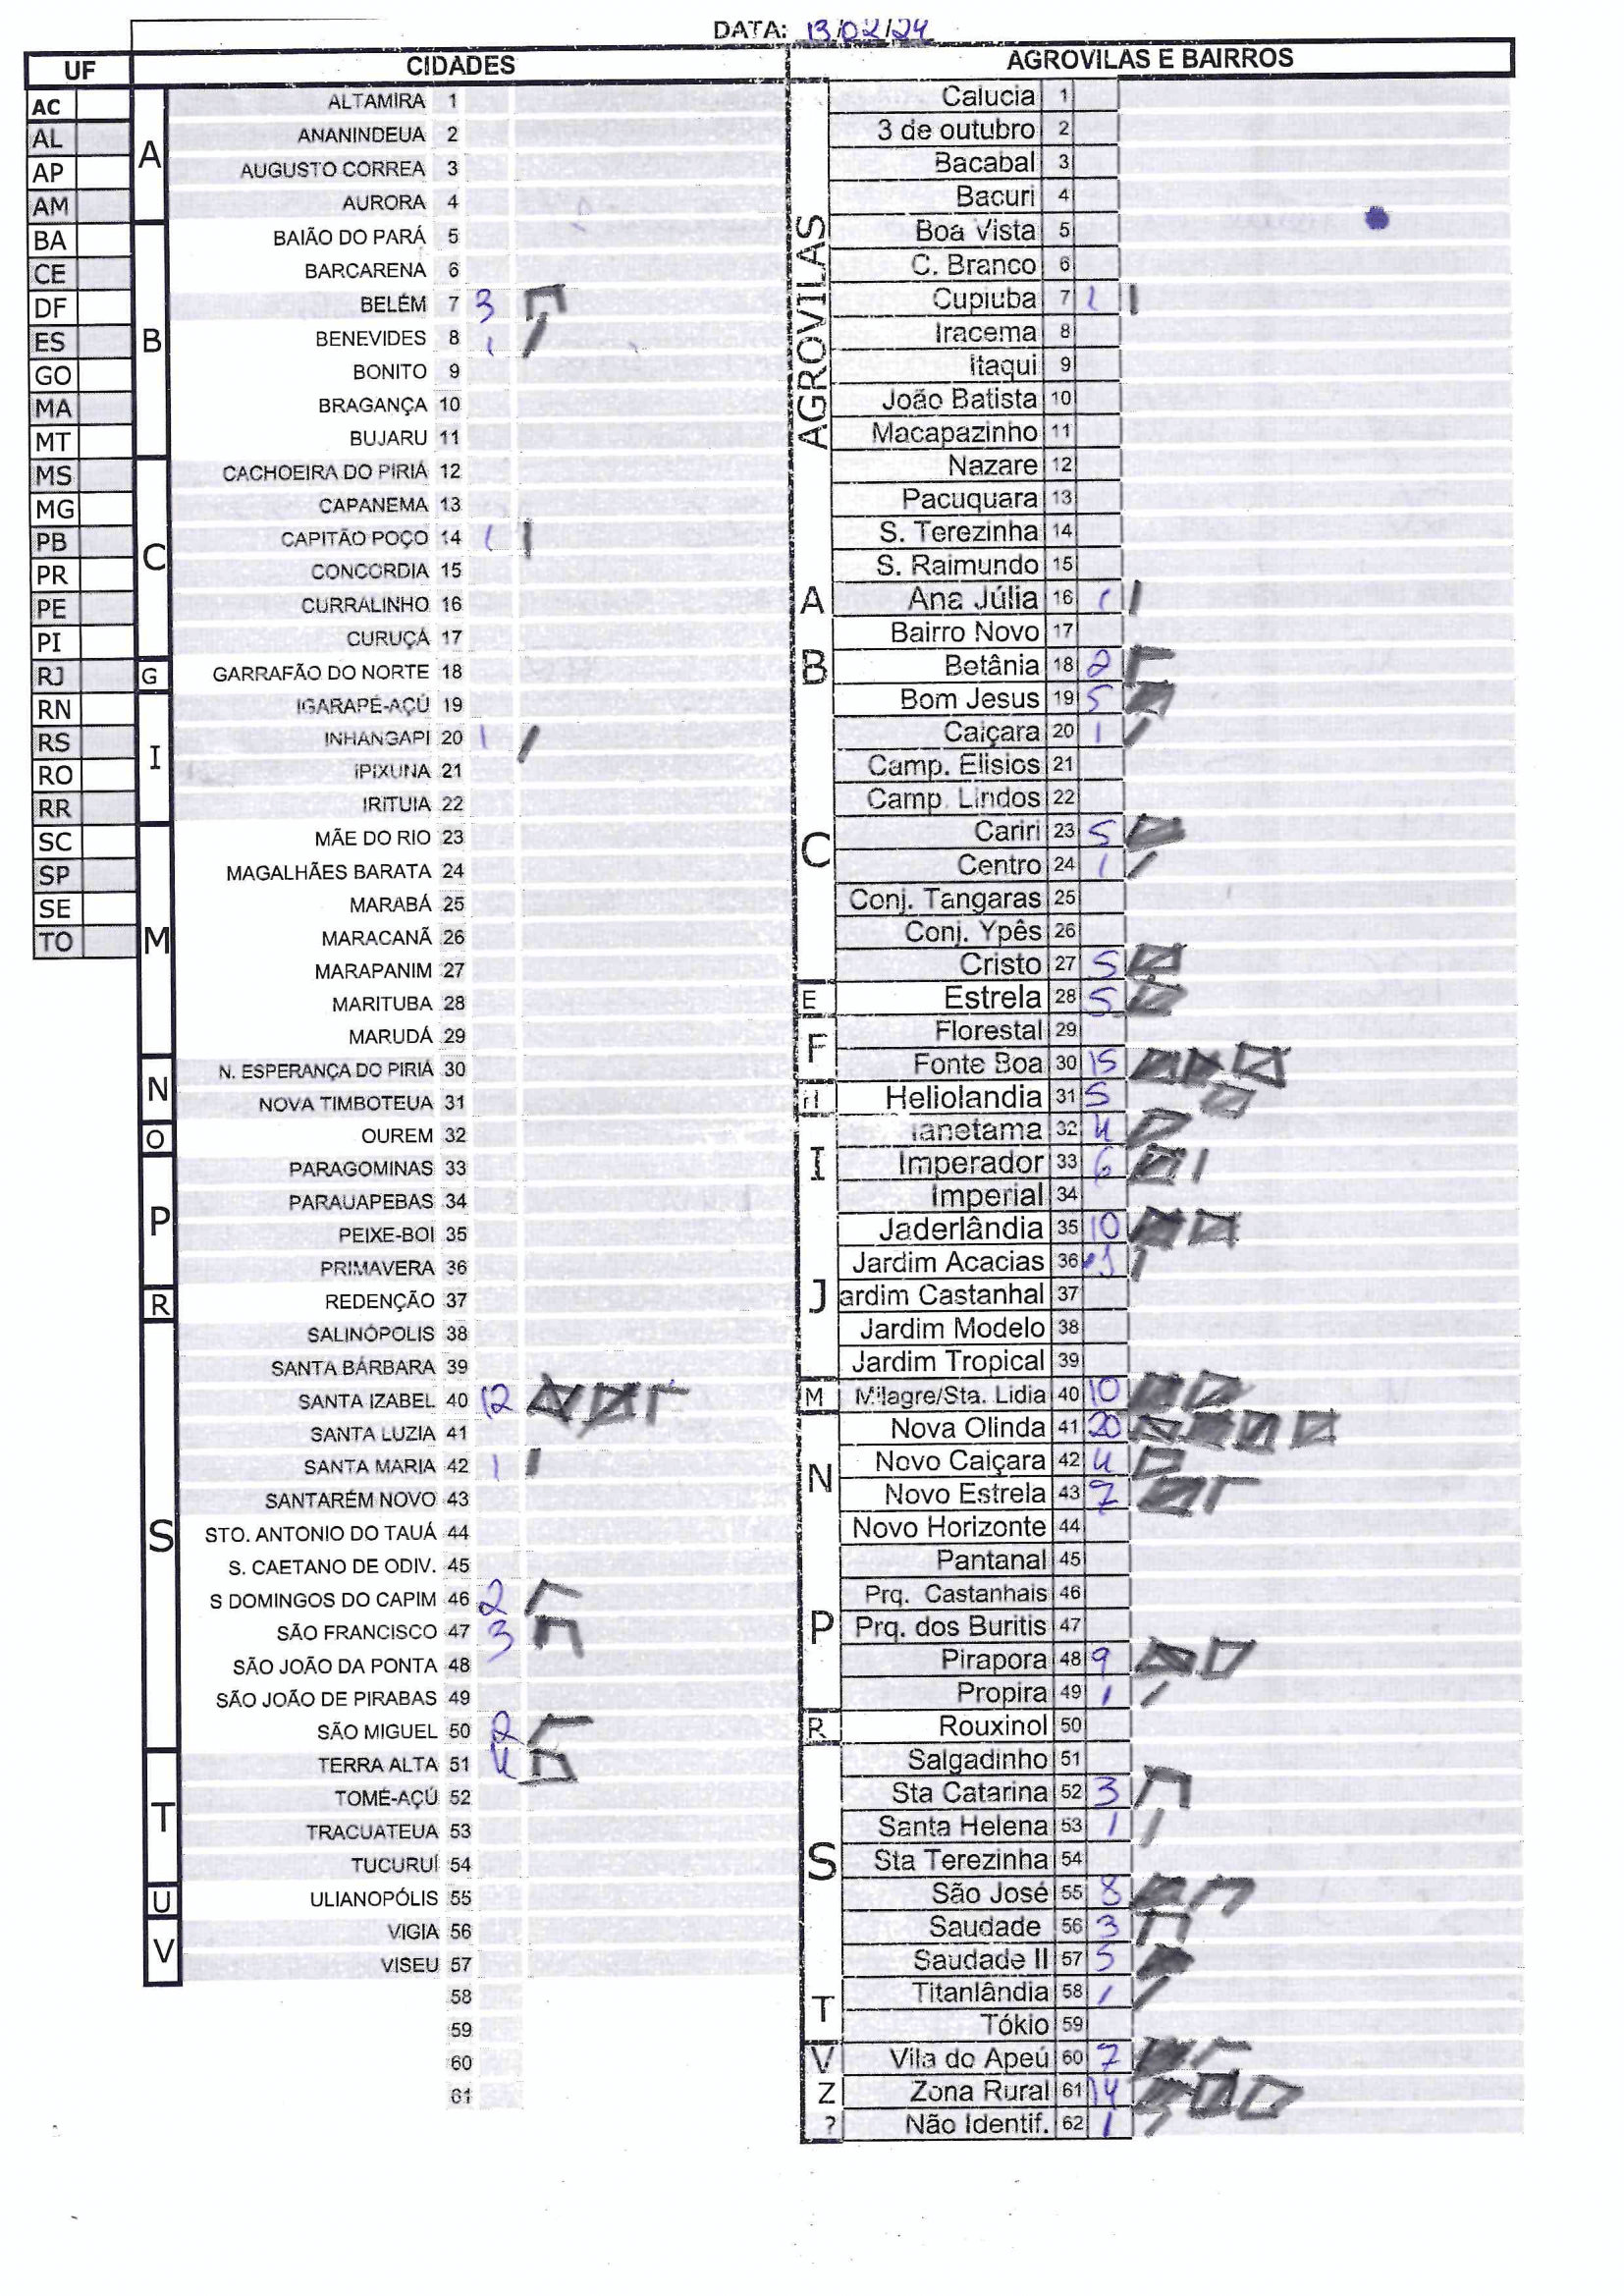 DATA: 13/02/24
UF
CIDADES
AGROVILAS E BAIRROS
AC
AL
AP
AM
BA
CE
DF
ES
GO
MA
MT
MS
MG
PB
PR
PE
PI
RJ
RN
RS
RO
RR
SC
SP
SE
TO
A
ALTAMIRA 1
ANANINDEUA 2
AUGUSTO CORREA 3
AURORA 4
B
BAIÃO DO PARÁ 5
BARCARENA 6
BELÉM 7 3
BENEVIDES 8 1
BONITO 9
BRAGANÇA 10
BUJARU 11
C
CACHOEIRA DO PIRIÁ 12
CAPANEMA 13
CAPITÃO POÇO 14 1
CONCORDIA 15
CURRALINHO 16
CURUÇÁ 17
G
GARRAFÃO DO NORTE 18
I
IGARAPÉ-AÇÚ 19
INHANGAPI 20 1
IPIXUNA 21
IRITUIA 22
M
MÃE DO RIO 23
MAGALHÃES BARATA 24
MARABÁ 25
MARACANÃ 26
MARAPANIM 27
MARITUBA 28
MARUDÁ 29
N
N. ESPERANÇA DO PIRIÁ 30
NOVA TIMBOTEUA 31
O
OUREM 32
P
PARAGOMINAS 33
PARAUAPEBAS 34
PEIXE-BOI 35
PRIMAVERA 36
R
REDENÇÃO 37
S
SALINÓPOLIS 38
SANTA BÁRBARA 39
SANTA IZABEL 40 12
SANTA LUZIA 41
SANTA MARIA 42 1
SANTARÉM NOVO 43
STO. ANTONIO DO TAUÁ 44
S. CAETANO DE ODIV. 45
S DOMINGOS DO CAPIM 46 2
SÃO FRANCISCO 47 3
SÃO JOÃO DA PONTA 48
SÃO JOÃO DE PIRABAS 49
SÃO MIGUEL 50 2
T
TERRA ALTA 51 4
TOMÉ-AÇÚ 52
TRACUATEUA 53
TUCURUÍ 54
U
ULIANOPÓLIS 55
V
VIGIA 56
VISEU 57
58
59
60
61
AGROVILAS
Calucia 1
3 de outubro 2
Bacabal 3
Bacuri 4
Boa Vista 5
C. Branco 6
Cupiuba 7 1
Iracema 8
Itaqui 9
João Batista 10
Macapazinho 11
Nazare 12
Pacuquara 13
S. Terezinha 14
S. Raimundo 15
A
Ana Júlia 16 1
B
Bairro Novo 17
Betânia 18 2
Bom Jesus 19 5
C
Caiçara 20 1
Camp. Elisios 21
Camp. Lindos 22
Cariri 23 5
Centro 24 1
Conj. Tangaras 25
Conj. Ypês 26
Cristo 27 5
E
Estrela 28 5
F
Florestal 29
Fonte Boa 30 15
H
Heliolandia 31 5
I
Ianetama 32 4
Imperador 33 6
Imperial 34
J
Jaderlândia 35 10
Jardim Acacias 36 1
ardim Castanhal 37
Jardim Modelo 38
Jardim Tropical 39
M
Milagre/Sta. Lidia 40 10
N
Nova Olinda 41 20
Novo Caiçara 42 4
Novo Estrela 43 7
Novo Horizonte 44
P
Pantanal 45
Prq. Castanhais 46
Prq. dos Buritis 47
Pirapora 48 9
Propira 49 1
R
Rouxinol 50
S
Salgadinho 51
Sta Catarina 52 3
Santa Helena 53 1
Sta Terezinha 54
São José 55 8
Saudade 56 3
Saudade II 57 5
T
Titanlândia 58 1
Tókio 59
V
Vila do Apeú 60 7
Z
Zona Rural 61 14
?
Não Identif. 62 1